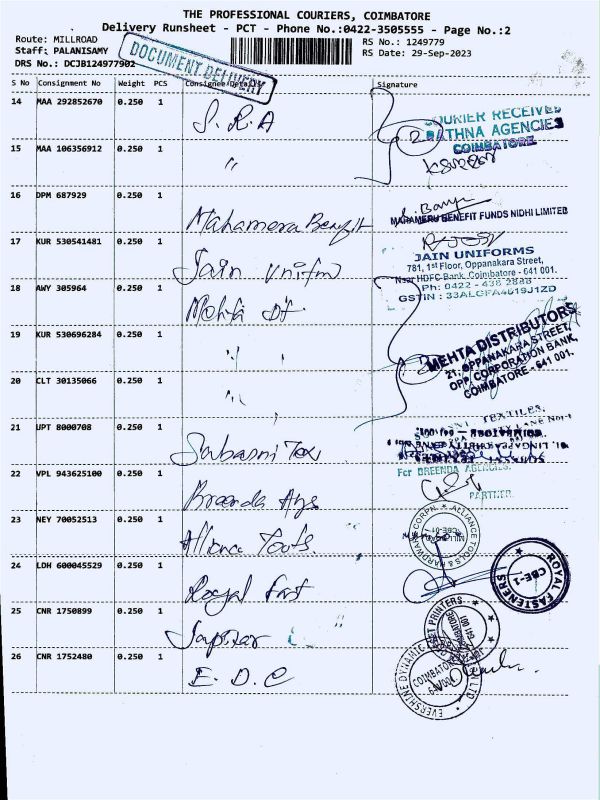 THE PROFESSIONAL COURIERS, COIMBATORE
Delivery Runsheet - PCT - Phone No.:0422-3505555 - Page No.:2
Route: MILLROAD
RS No.: 1249779
Staff: PALANISAMY
RS Date: 29-Sep-2023
DRS No.: DCJB124977902
DOCUMENT DELIVERY
S No Consignment No Weight PCS Consignee Details Signature
14 MAA 292852670 0.250 1
S. R. A
COURIER RECEIVED
RATHNA AGENCIES
COIMBATORE
2
15 MAA 106356912 0.250 1
"
16 DPM 687929 0.250 1
Mahamera Benefit
MAHAMERU BENEFIT FUNDS NIDHI LIMITED
17 KUR 530541481 0.250 1
Jain Unifm
JAIN UNIFORMS
781, 1st Floor, Oppanakara Street,
Near HDFC Bank, Coimbatore - 641 001.
Ph: 0422 - 438 2888
GSTIN : 33ALCFA4619J1ZD
18 AWY 305964 0.250 1
Mehta Dt
19 KUR 530696284 0.250 1
" "
MEHTA DISTRIBUTORS
21, OPPANAKARA STREET,
OPP CORPORATION BANK,
COIMBATORE - 641 001.
20 CLT 30135066 0.250 1
"
21 UPT 8000708 0.250 1
TEXTILES.
22 VPL 943625100 0.250 1
Breenda Ags
For BREENDA AGENCIES.
PARTNER.
23 NEY 70052513 0.250 1
Allianc Tools.
ALLIANCE TOOLS & HARDWARE CORPN.
CBE-01
24 LDH 600045529 0.250 1
Royal Fast
ROYAL FASTENERS
CBE-1
25 CNR 1750899 0.250 1
PRINTERS
26 CNR 1752480 0.250 1
E. D. C
EVERSHINE DYNAMIC
COIMBATORE
641001